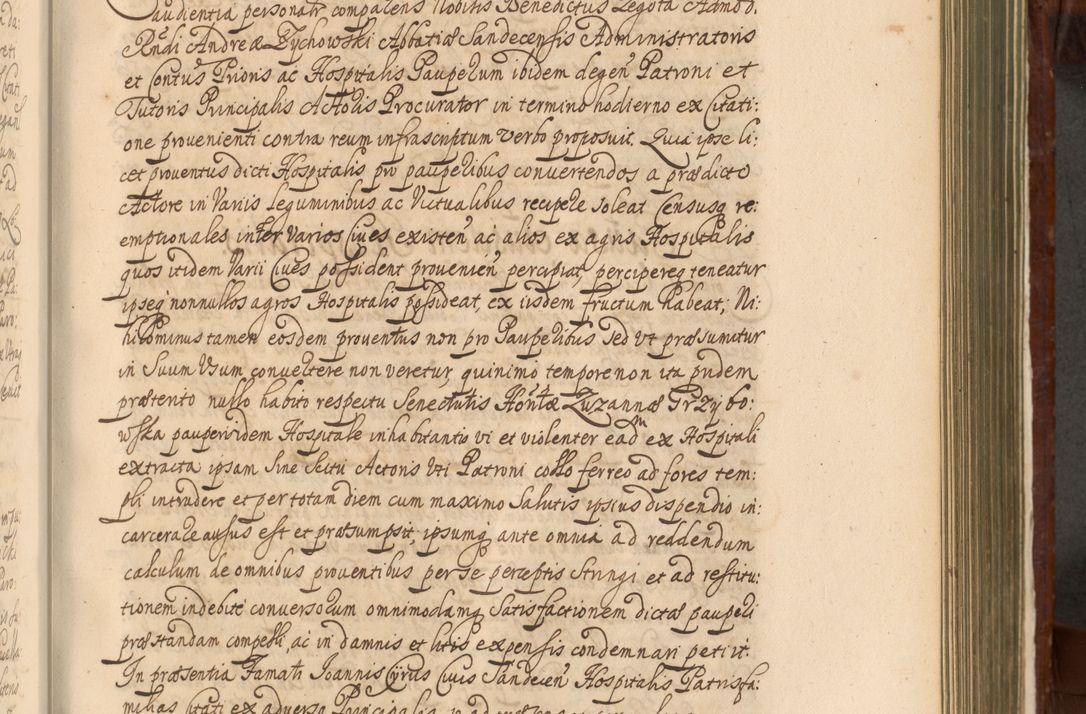 audientia personatr comparens Nobilis Benedictus Zegota Admod.
Rndi Andreæ Zychowski Abbatiæ Sandecensis Administratoris
et Contus Prioris ac Hospitalis Pauperum ibidem degen Patroni et
Tutoris Principalis Actoris Procurator in termino hodierno ex Citati:
one provenienti contra reum infrascriptum verbo proposuit, Quia ipse li:
cet proventus dicti Hospitalis pro pauperibus convertendos a prædicto
Actore in Variis leguminibus ac Victualibus recipere soleat Censusq re:
emptionales inter varios Cives existen ac alios ex agris Hospitalis
quos itidem Varii Cives possident provenien percipiat, percipereq teneatur
ipseq nonnullos agros Hospitalis possideat, ex iisdem fructum habeat, Ni:
hilominus tamen eosdem proventus non pro Pauperibus sed vt præsumitur
in Suum Vsum convertere non veretur, quinimo tempore non ita pridem
præterito nullo habito respectu Senectutis Hontæ Zuzannæ Grzybo:
wska pauperi idem Hospitale inhabitantis vi et violenter eadm ex Hospitali
extracta ipsam sine scitu Actoris Vti Patroni collo ferreo ad fores tem:
pli intrudere et per totam diem cum maximo Salutis ipsius dispendio in:
carcerare ausus est et præsumpsit, ipsumq ante omnia ad reddendum
calculum de omnibus proventibus per se perceptis stringi et ad restitu:
tionem indebite conversorum omnimodamq Satisfactionem dictæ pauperi
præstandam compelli, ac in damnis et litis expensis condemnari petiit.
In præsentia Famati Joannis Cyrus Civis Sandecen Hospitalis Patrisfa:
milias Citati ex adverso Principalis